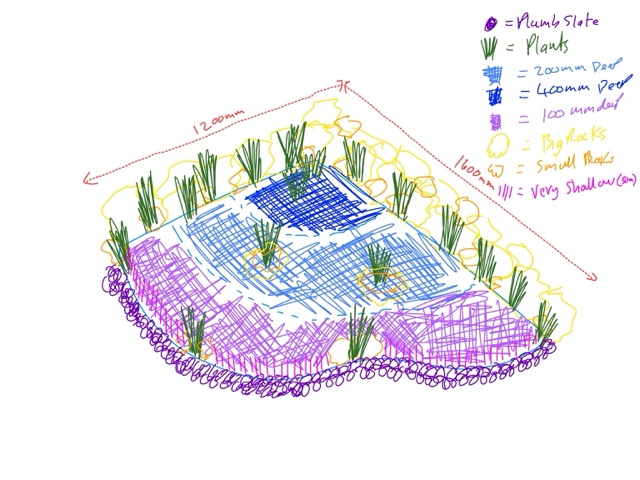 = Plumb Slate
= Plants
= 200mm Deep
= 400mm Deep
= 100mm deep
= Big Rocks
= Small Rocks
= Very Shallow
1200mm
1600mm